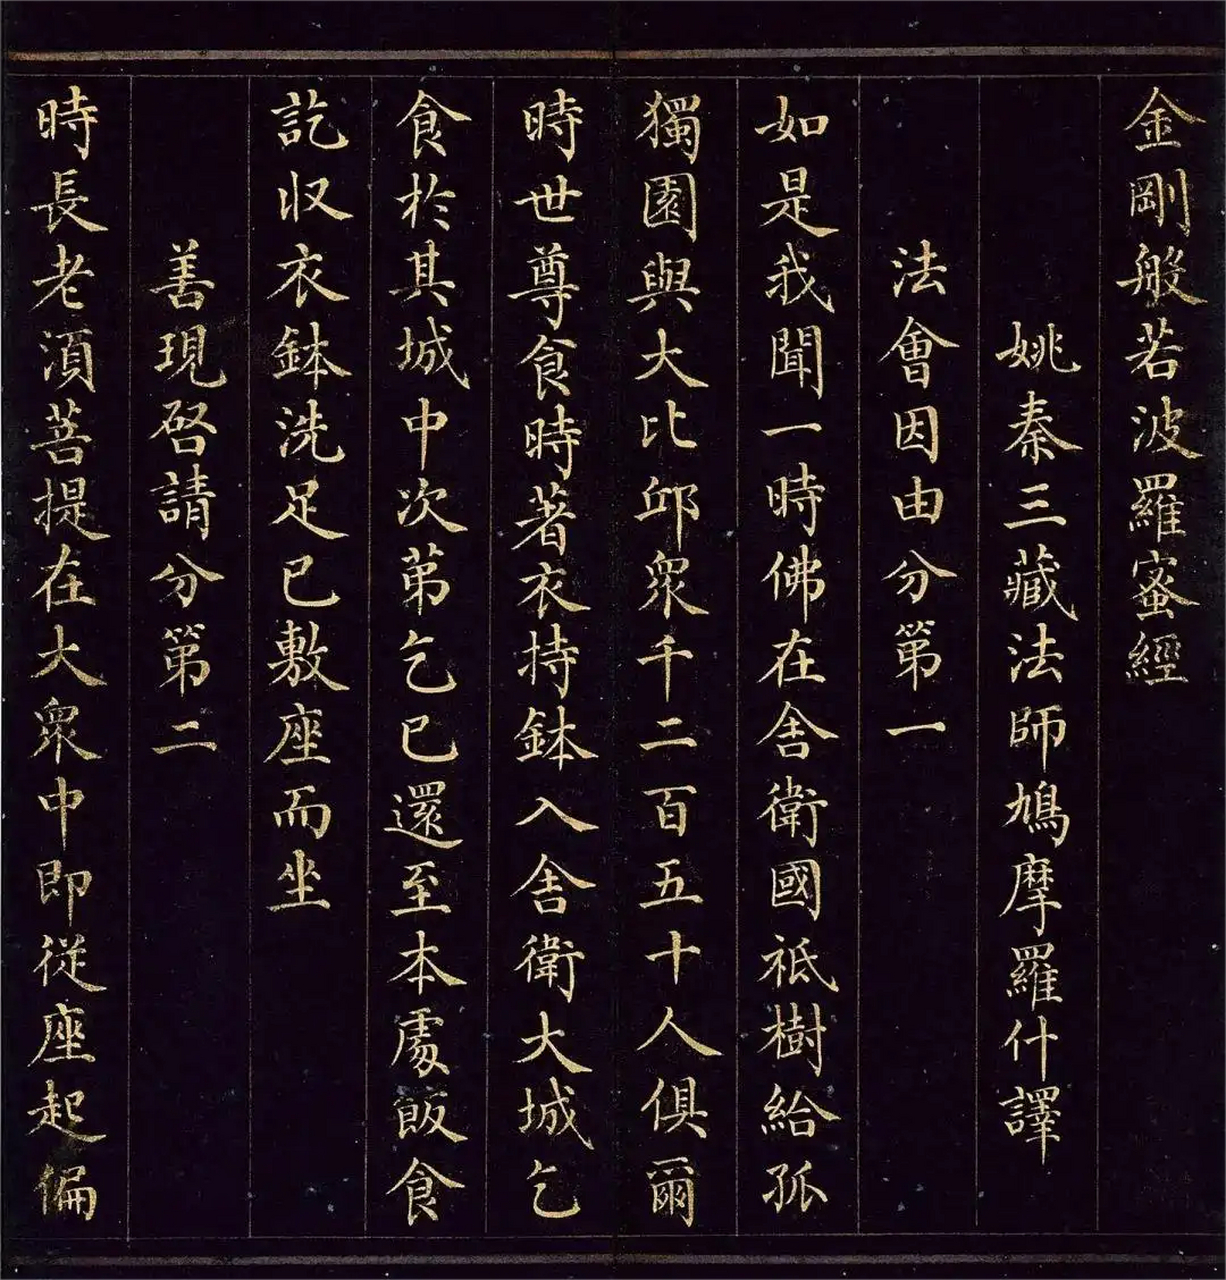 金剛般若波羅蜜經
姚秦三藏法師鳩摩羅什譯
法會因由分第一
如是我聞一時佛在舍衛國祗樹給孤
獨園與大比邱眾千二百五十人俱爾
時世尊食時著衣持鉢入舍衛大城乞
食於其城中次第乞已還至本處飯食
訖収衣鉢洗足已敷座而坐
善現啓請分第二
時長老湏菩提在大眾中即從座起偏